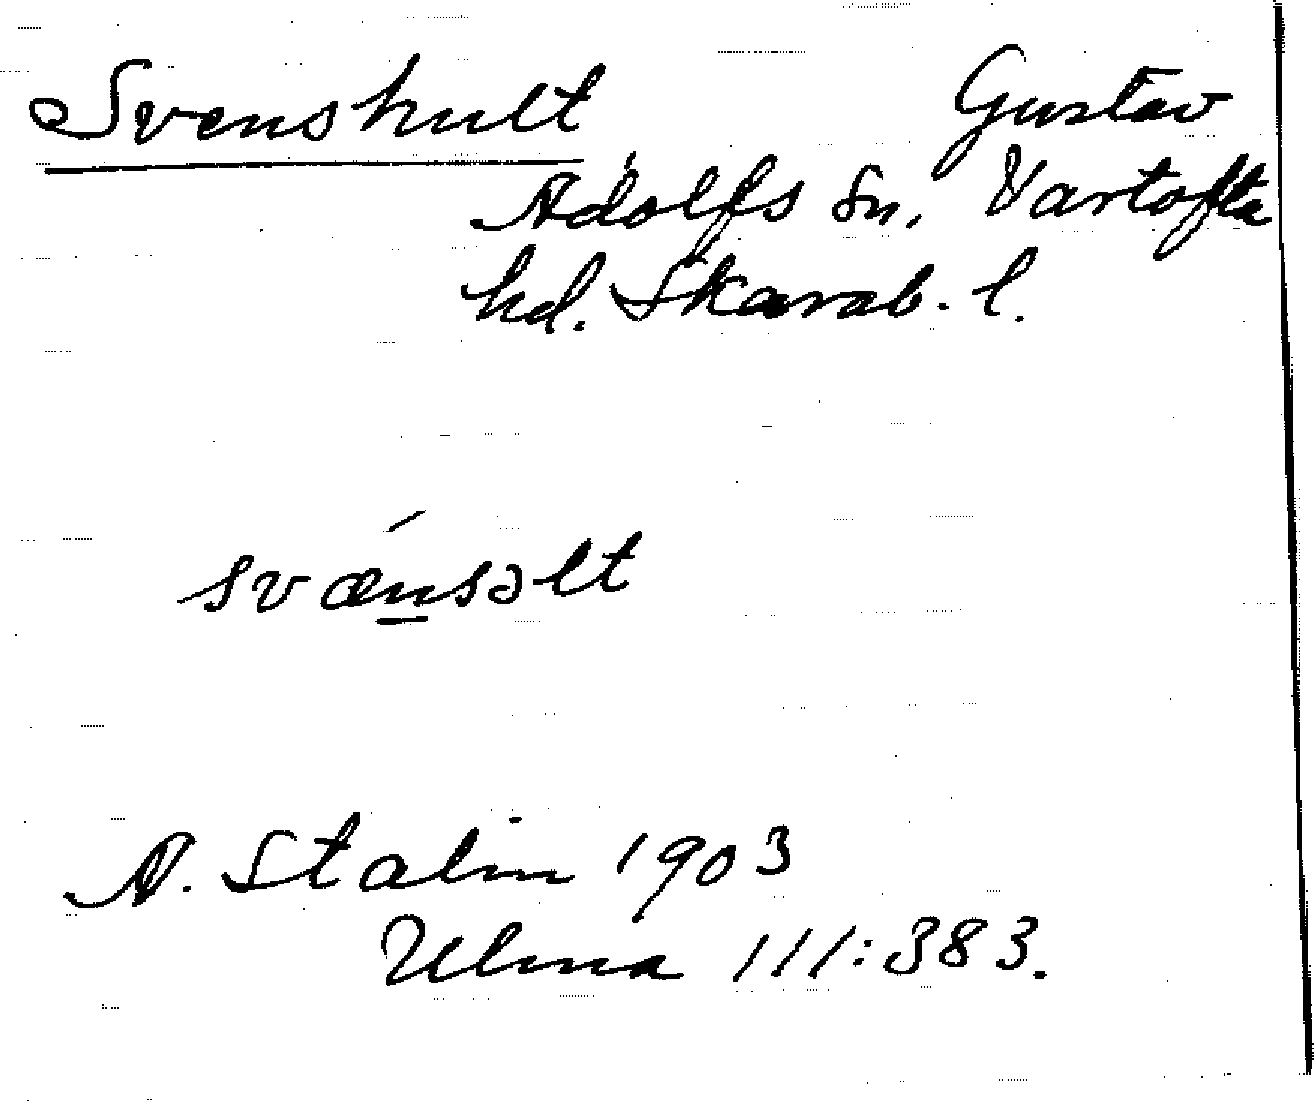 Svenshult Gustav
Adolfs sn, Vartofta
hd. Skarab. l.
svænsəlt
A. Stalin 1903
Ulma 111:383.